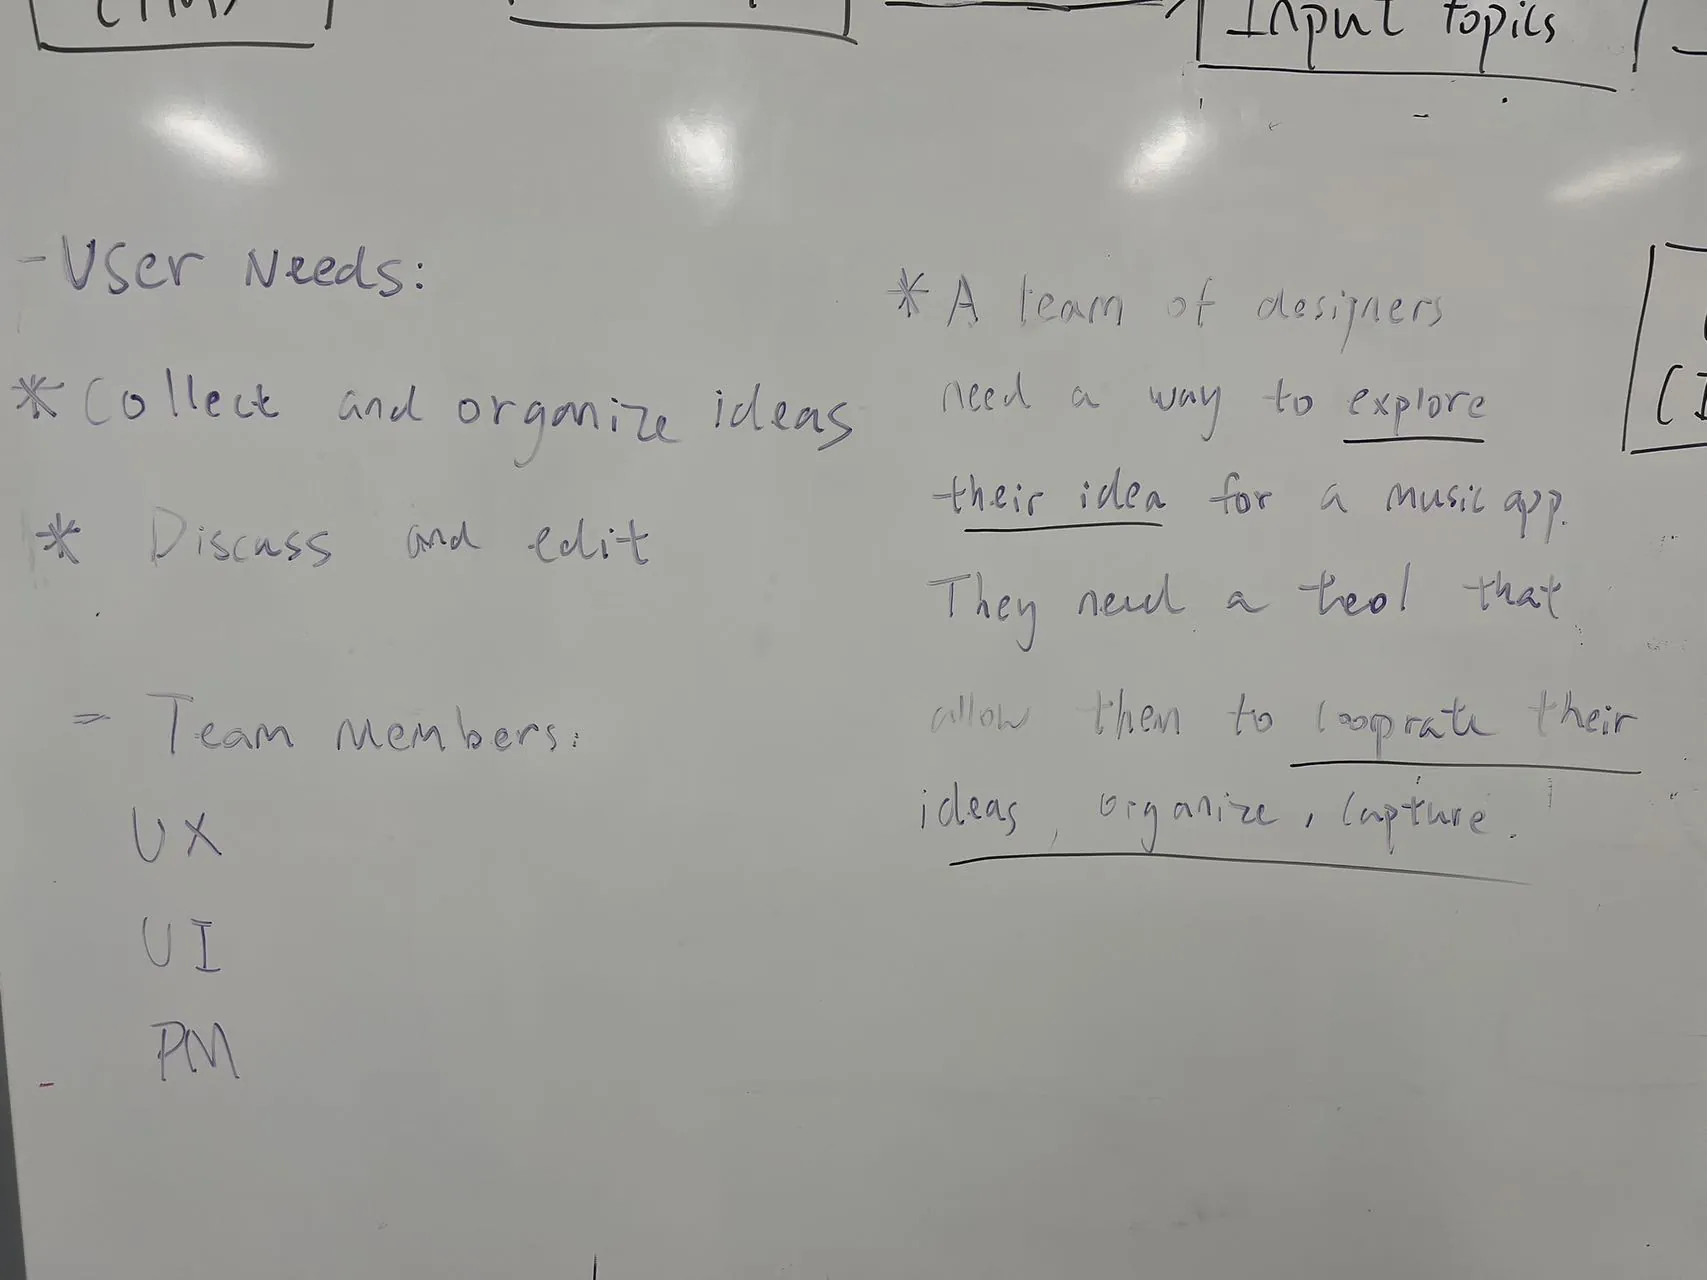 Input topics
- User Needs:
* Collect and organize ideas
* Discuss and edit
- Team members:
UX
UI
PM
* A team of designers
need a way to explore
their idea for a music app.
They need a tool that
allow them to cooprate their
ideas, organize, capture.